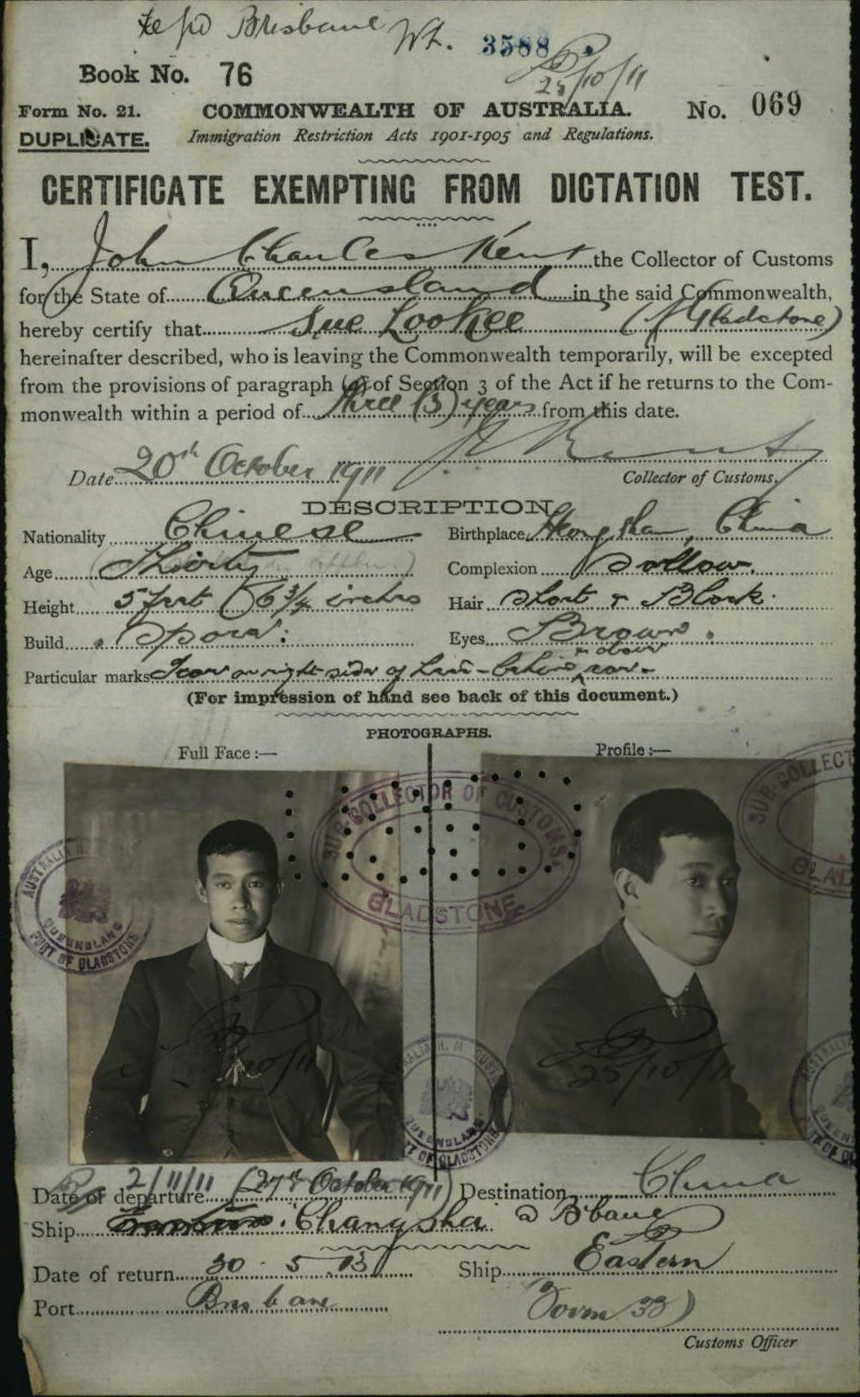 Brisbane Wt. 3588
Book No. 76
25/10/11
Form No. 21. COMMONWEALTH OF AUSTRALIA. No. 069
DUPLICATE. Immigration Restriction Acts 1901-1905 and Regulations.
CERTIFICATE EXEMPTING FROM DICTATION TEST.
I, John Charles Kent the Collector of Customs
for the State of Queensland in the said Commonwealth,
hereby certify that Sue Lookee (Gladstone)
hereinafter described, who is leaving the Commonwealth temporarily, will be excepted
from the provisions of paragraph (a) of Section 3 of the Act if he returns to the Com-
monwealth within a period of three (3) years from this date.
Date 20th October 1911
Collector of Customs.
DESCRIPTION
Nationality Chinese Birthplace Hong Shan, China
Age Thirty Complexion Sallow.
Height 5 feet 6 3/4 inches Hair Short & Black.
Build Spare. Eyes Brown.
Particular marks Scar on right side of head - behind & above ear -
(For impression of hand see back of this document.)
PHOTOGRAPHS.
Full Face :— Profile :—
SUB-COLLECTOR OF CUSTOMS
GLADSTONE
SUB-COLLECT
GLAD
AUSTRALIA H.
QUEENSLAND
PORT OF GLADSTONE
10/11
25/10/11
AUSTRALIA H. M. CUST
QUEENSLAND
PORT OF GLADSTONE
Date of departure 2/11/11 (27th October 1911) Destination China
Ship Changsha Bbane
Date of return 30. 5. 13 Ship Eastern
Port Brisbane (Form 33)
Customs Officer